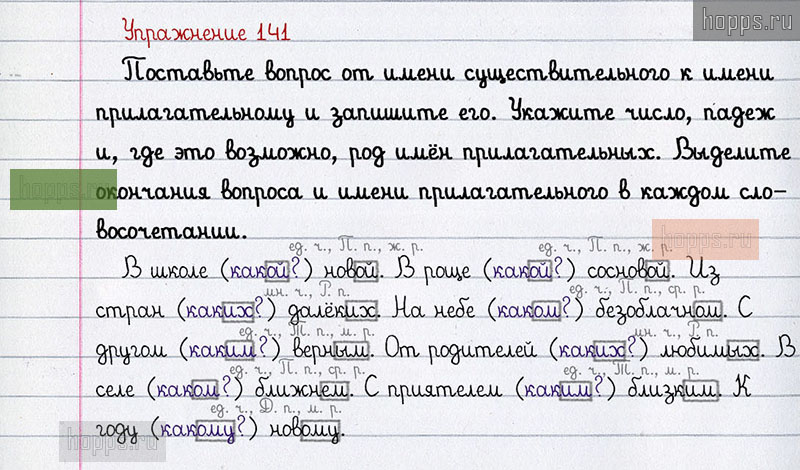 hopps.ru
Упражнение 141
Поставьте вопрос от имени существительного к имени
прилагательному и запишите его. Укажите число, падеж
и, где это возможно, род имён прилагательных. Выделите
hopps.ru
окончания вопроса и имени прилагательного в каждом сло-
восочетании.
hopps.ru
ед. ч., П. п., ж. р. ед. ч., П. п., ж. р.
В школе (какой?) новой. В роще (какой?) сосновой. Из
мн. ч., Р. п. ед. ч., П. п., ср. р.
стран (каких?) далёких. На небе (каком?) безоблачном. С
ед. ч., Т. п., м. р. мн. ч., Р. п.
другом (каким?) верным. От родителей (каких?) любимых. В
ед. ч., П. п., ср. р. ед. ч., Т. п., м. р.
селе (каком?) ближнем. С приятелем (каким?) близким. К
ед. ч., Д. п., м. р.
году (какому?) новому.
hopps.ru